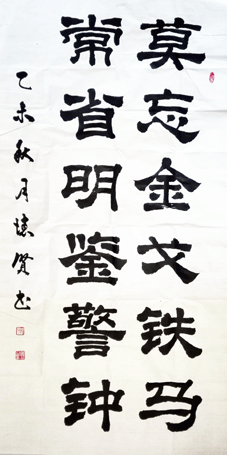 莫忘金戈铁马
常省明鉴警钟
乙未秋月怀贤书